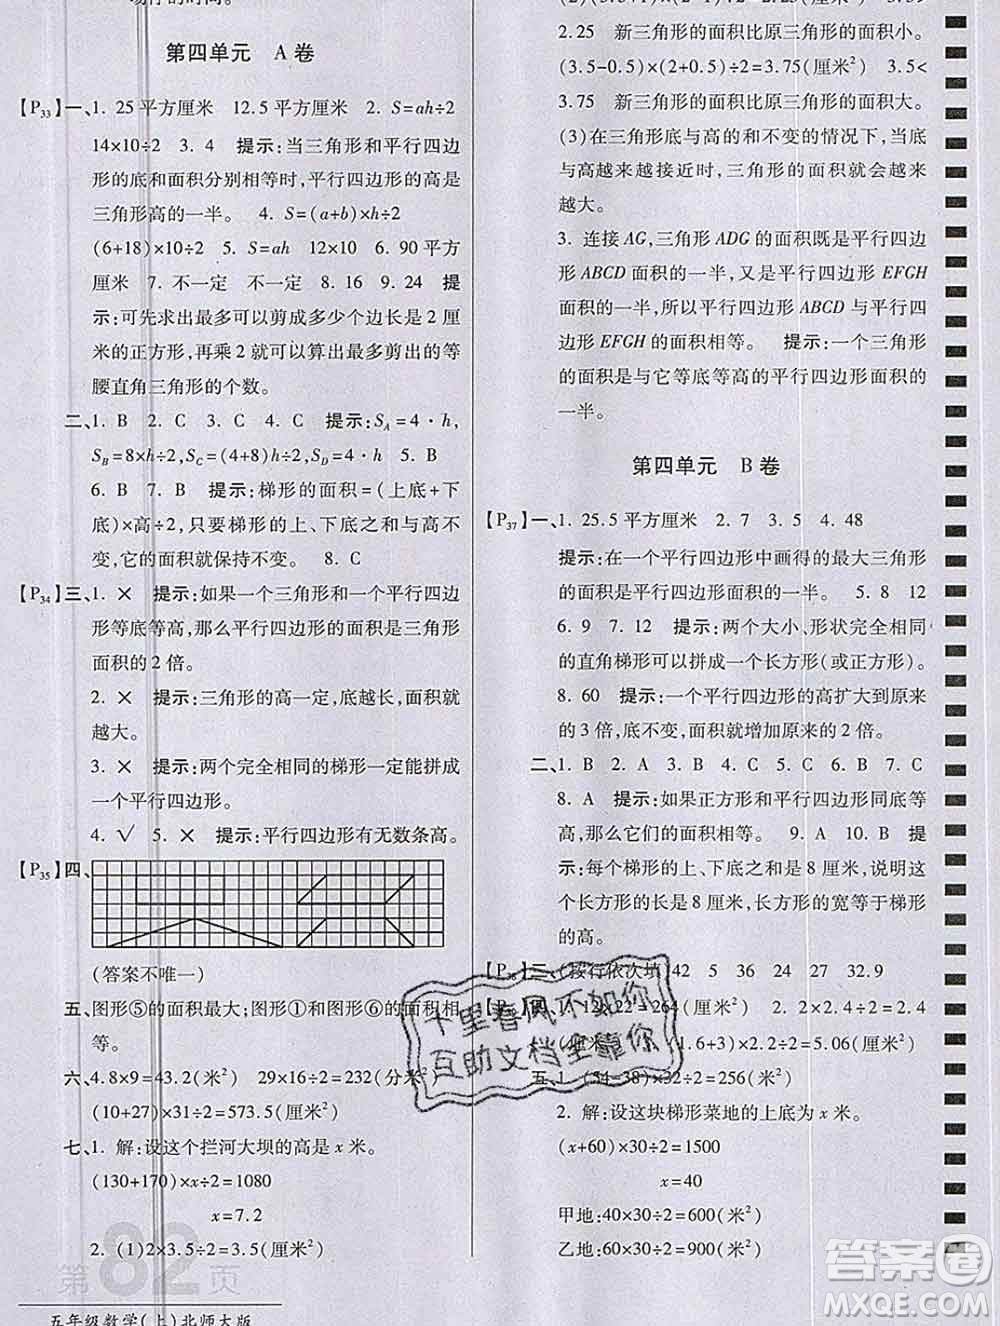 场作的时间。
第四单元 A卷
【P33】一、1. 25平方厘米 12.5平方厘米 2. S=ah÷2
14×10÷2 3. 4 提示:当三角形和平行四边
形的底和面积分别相等时,平行四边形的高是
三角形高的一半。 4. S=(a+b)×h÷2
(6+18)×10÷2 5. S=ah 10×25 6. 90平方
厘米 7. 不一定 不一定 8. 16 9. 24 提
示:可先求出最多可以剪成多少个边长是2厘
米的正方形,再乘2就可以算出最多剪出的等
腰直角三角形的个数。
二、1. B 2. C 3. C 4. C 提示:SA=4·h,
SB=8×h÷2,SC=(4+8)h÷2=6h 5. B
6. B 7. B 提示:梯形的面积=(上底+下
底)×高÷2,只要梯形的上、下底之和与高不
变,它的面积就保持不变。 8. C
【P34】三、1. × 提示:如果一个三角形和一个平行四边
形等底等高,那么平行四边形的面积是三角形
面积的2倍。
2. × 提示:三角形的高一定,底越长,面积就
越大。
3. × 提示:两个完全相同的梯形一定能拼成
一个平行四边形。
4. √ 5. × 提示:平行四边形有无数条高。
【P35】四、
(答案不唯一)
五、图形⑤的面积最大;图形①和图形⑥的面积相
等。
六、4.8×9=43.2(米²) 29×16÷2=232(分米²)
(10+27)×31÷2=573.5(厘米²)
七、1. 解:设这个拦河大坝的高是x米。
(130+170)×x÷2=1080
x=7.2
2. (1)2×3.5÷2=3.5(厘米²)
第82页
五年级数学(上)北师大版
2.25 新三角形的面积比原三角形的面积小。
(3.5-0.5)×(2+0.5)÷2=3.75(厘米²) 3.5<
3.75 新三角形的面积比原三角形的面积大。
(3)在三角形底与高的和不变的情况下,当底
与高越来越接近时,三角形的面积就会越来
越大。
3. 连接AG,三角形ADG的面积既是平行四边
形ABCD面积的一半,又是平行四边形EFGH
面积的一半,所以平行四边形ABCD与平行四
边形EFGH的面积相等。 提示:一个三角形
的面积是与它等底等高的平行四边形面积的
一半。
第四单元 B卷
【P37】一、1. 25.5平方厘米 2. 7 3. 30 4. 48
提示:在一个平行四边形中画得的最大三角形
的面积是平行四边形面积的一半。 5. 8 12
6. 9 7. 12 提示:两个大小、形状完全相同
的直角梯形可以拼成一个长方形(或正方形)。
8. 60 提示:一个平行四边形的高扩大到原来
的3倍,底不变,面积就增加原来的2倍。
二、1. B 2. C 3. A 4. C 5. B 6. B 7. C
8. A 提示:如果正方形和平行四边形同底等
高,那么它们的面积相等。 9. A 10. B 提
示:每个梯形的上、下底之和是8厘米,说明拼
成的长方形的长是8厘米,长方形的宽等于梯形
的高。
【P38】三、(按行依次填)42 5 36 24 32.9
22÷2=264(厘米²) 2×2.4÷2=2.4
1.6+3)×2.2÷2=5.06(厘米²)
五、1. (54-38)×32÷2=256(米²)
2. 解:设这块梯形菜地的上底为x米。
(x+60)×30÷2=1500
x=40
甲地:40×30÷2=600(米²)
乙地:60×30÷2=900(米²)
千里春风不如你
互助文档全靠你
答案圈
MXQE.COM